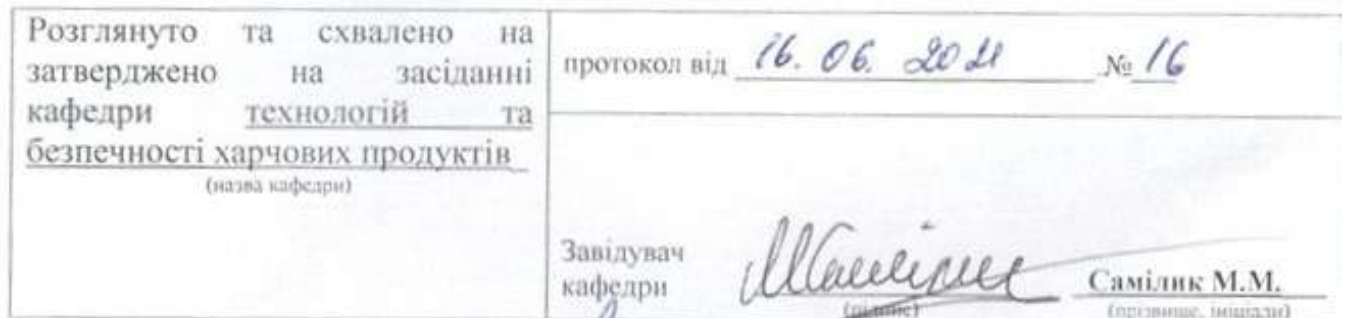 Розглянуто та схвалено на
затверджено на засіданні
кафедри технологій та
безпечності харчових продуктів
(назва кафедри)
протокол від 16. 06. 2021 № 16
Завідувач
кафедри Самілик М.М.
(підпис) (прізвище, ініціали)